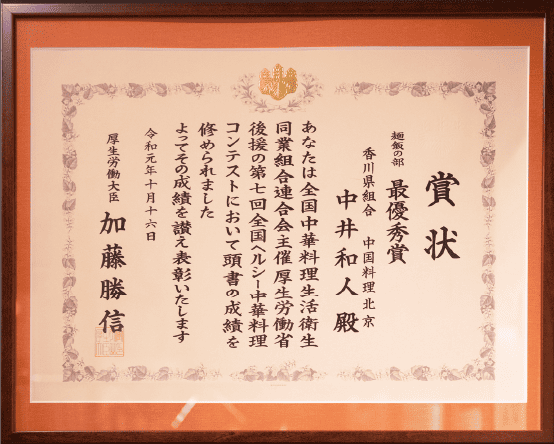 賞状
麺飯の部
最優秀賞
香川県組合 中国料理北京
中井和人殿
あなたは全国中華料理生活衛生
同業組合連合会主催厚生労働省
後援の第七回全国ヘルシー中華料理
コンテストにおいて頭書の成績を
修められました
よってその成績を讃え表彰いたします
令和元年十月十六日
厚生労働大臣
加藤勝信